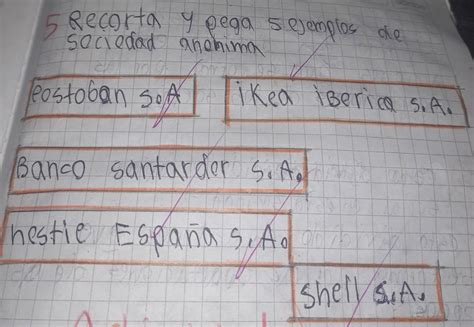 5 Recorta y pega 5 ejemplos de
sociedad anonima
Postoban S.A
ikea iBerica S.A.
Banco santarder S.A.
nestie España S.A.
shell S.A.